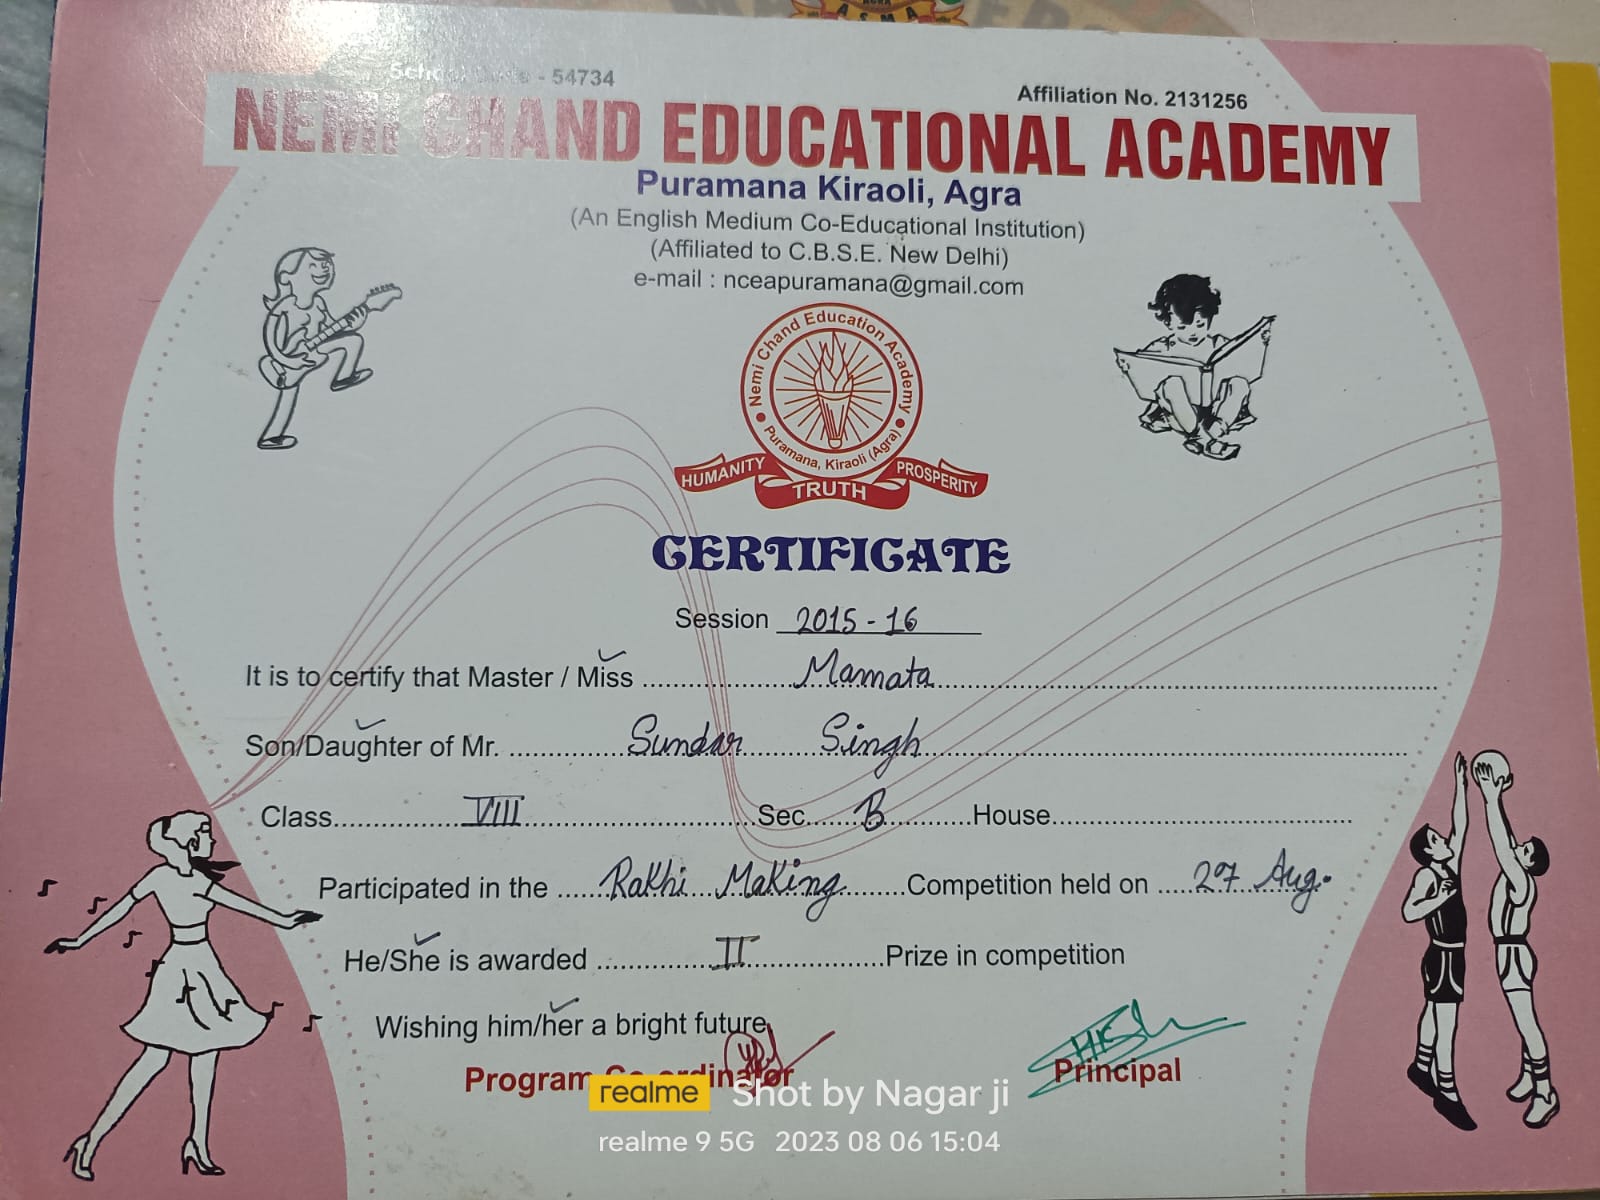 ASMA
School Code - 54734
Affiliation No. 2131256
NEMI CHAND EDUCATIONAL ACADEMY
Puramana Kiraoli, Agra
(An English Medium Co-Educational Institution)
(Affiliated to C.B.S.E. New Delhi)
e-mail : nceapuramana@gmail.com
Nemi Chand Education Academy
Puramana, Kiraoli (Agra)
HUMANITY TRUTH PROSPERITY
CERTIFICATE
Session 2015-16
It is to certify that Master / Miss Mamata
Son/Daughter of Mr. Sundar Singh
Class VIII Sec B House
Participated in the Rakhi Making Competition held on 27 Aug.
He/She is awarded II Prize in competition
Wishing him/her a bright future
Program Co-ordinator Principal
realme Shot by Nagar ji
realme 9 5G 2023 08 06 15:04